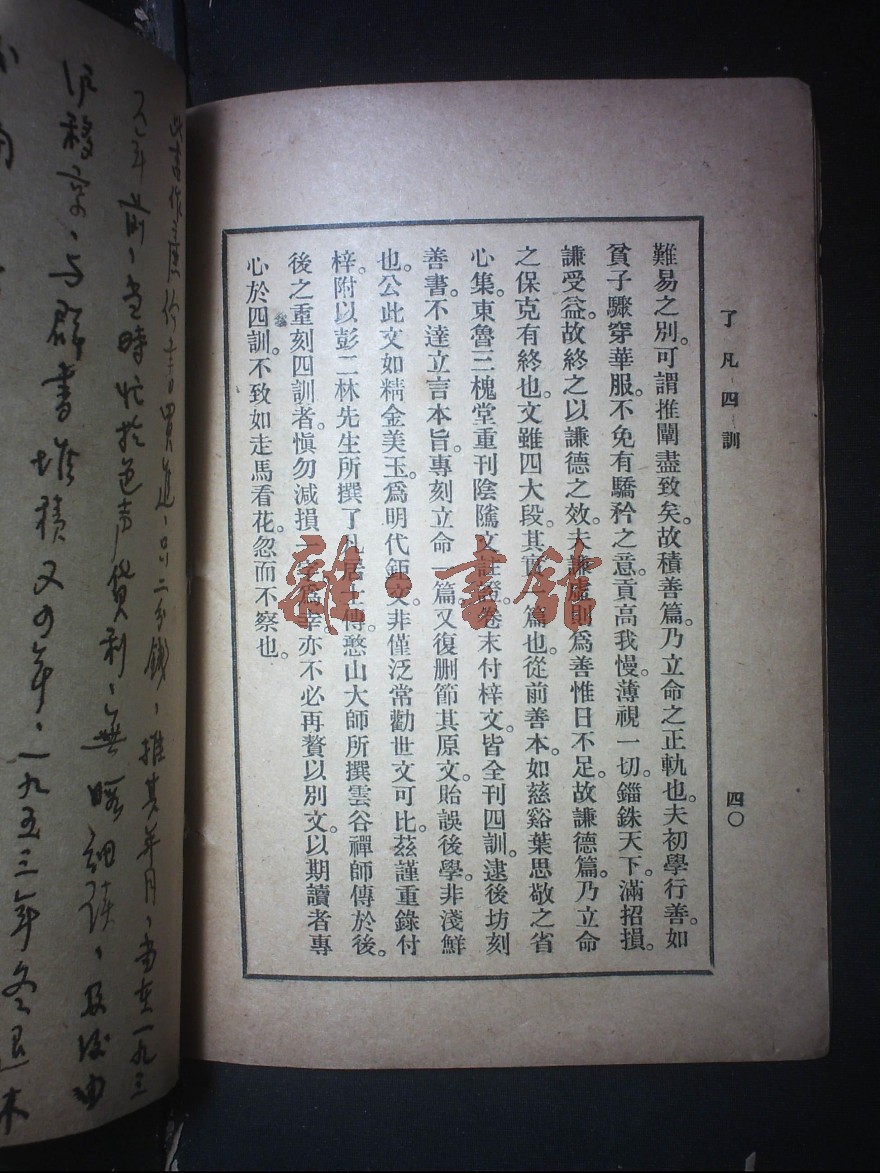 了凡四訓
四〇
難易之別。可謂推闡盡致矣。故積善篇。乃立命之正軌也。夫初學行善。如
貧子驟穿華服。不免有驕矜之意。貢高我慢。薄視一切。錙銖天下。滿招損。
謙受益。故終之以謙德之效。夫謙虛則爲善惟日不足。故謙德篇。乃立命
之保克有終也。文雖四大段。其實一篇也。從前善本。如慈谿葉思敬之省
心集。東魯三槐堂重刊陰隲文註證。卷末付梓文。皆全刊四訓。逮後坊刻
善書。不達立言本旨。專刻立命一篇。又復删節其原文。貽誤後學。非淺鮮
也。公此文如精金美玉。爲明代鉅文。非僅泛常勸世文可比。茲謹重錄付
梓。附以彭二林先生所撰了凡居士傳。憨山大師所撰雲谷禪師傳於後。
後之重刻四訓者。愼勿減損一字爲幸。亦不必再贅以別文。以期讀者專
心於四訓。不致如走馬看花。忽而不察也。
雜·書館
此書作應付書買進，只二分錢，推其年月，當在一九三
年前，當時忙於色声貨利，無暇細讀，及後由
移家，与群書堆積又0年，一九五三年冬退休